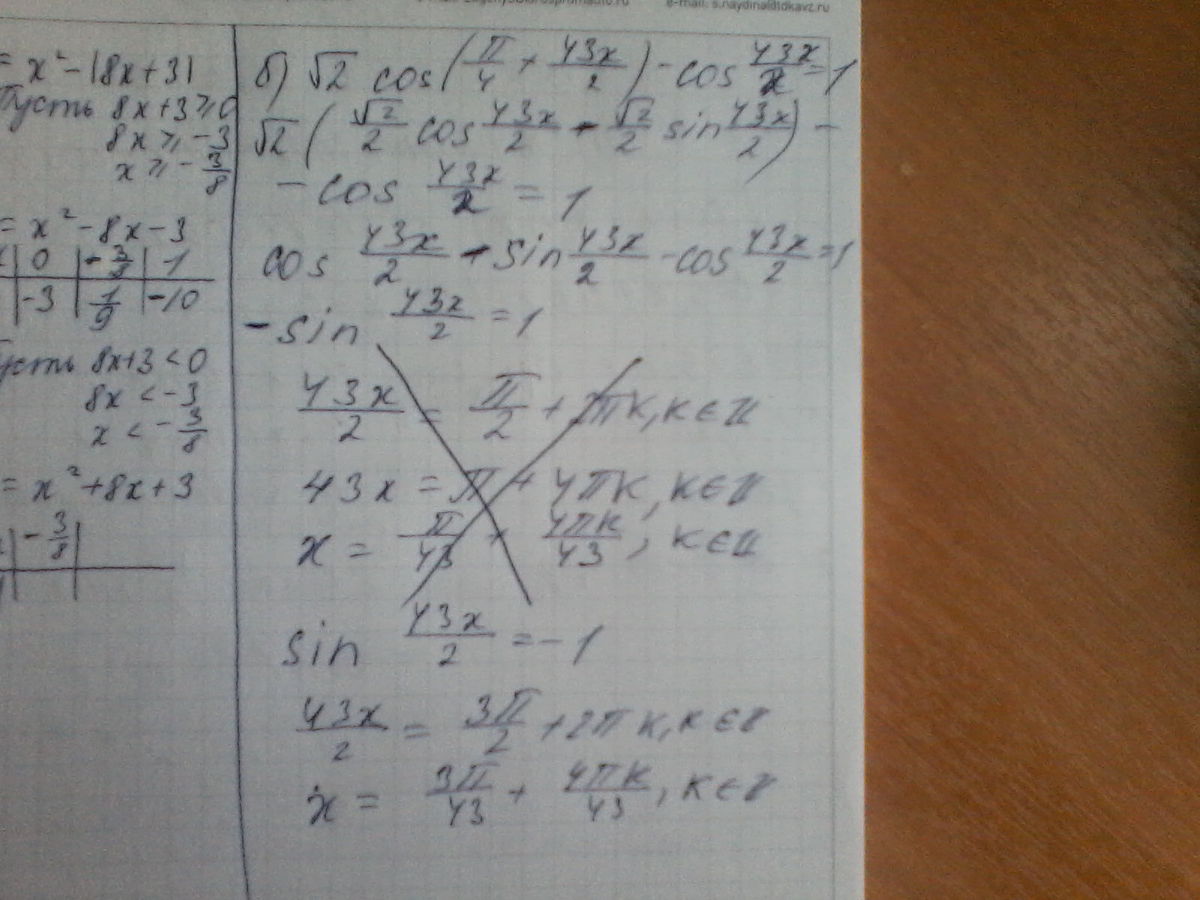 e-mail: s.naydina@tdkavz.ru
= x² - |8x+3|
Пусть 8x+3 ≥ 0
8x ≥ -3
x ≥ -3/8
= x² - 8x - 3
0 | -3/8 | -1
-3 | 1/9 | -10
усть 8x+3 < 0
8x < -3
x < -3/8
= x² + 8x + 3
-3/8
б) √2 cos(π/4 + 43x/2) - cos 43x/2 = 1
√2 (√2/2 cos 43x/2 - √2/2 sin 43x/2) -
- cos 43x/2 = 1
cos 43x/2 - sin 43x/2 - cos 43x/2 = 1
- sin 43x/2 = 1
43x/2 = π/2 + 2πk, k∈Z
43x = π + 4πk, k∈Z
x = π/43 + 4πk/43, k∈Z
sin 43x/2 = -1
43x/2 = 3π/2 + 2πk, k∈Z
x = 3π/43 + 4πk/43, k∈Z